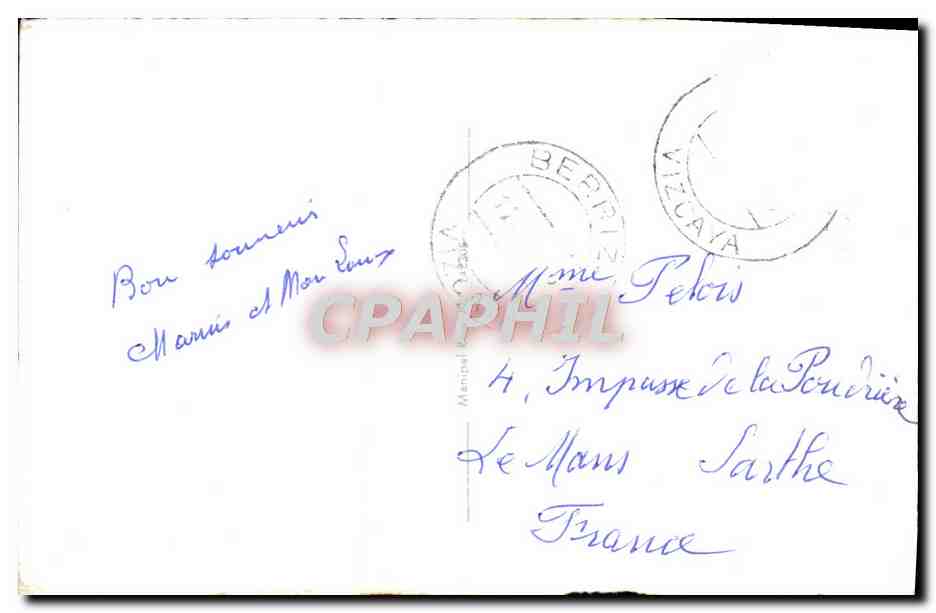 Bon souvenir
et
Mme Pelois
4, Impasse de la Poudrière
Le Mans Sarthe
France
BERRIZ
VIZCAYA
VIZCAYA
CPAPHIL
Manipel